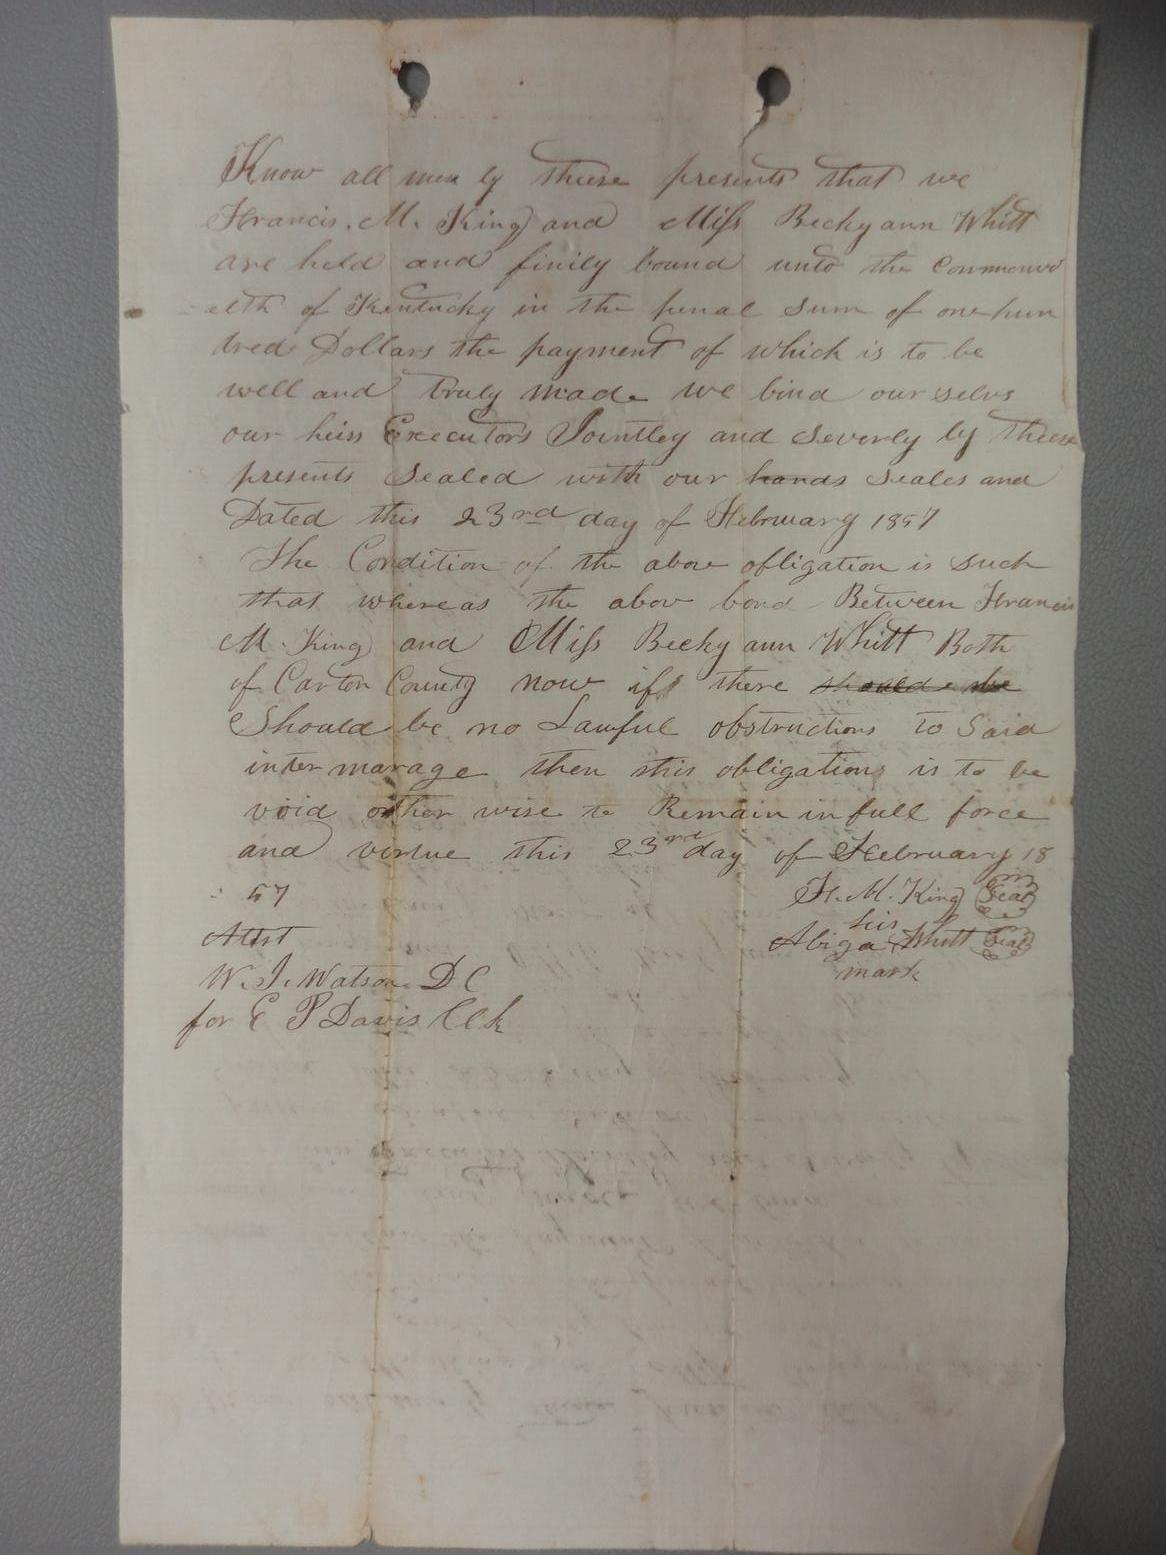 Know all men by these presents that we
Francis. M. King and Miss Becky ann Whitt
are held and firily bound unto the Commonw
- elth of Kentucky in the penal Sum of one hun
dred Dollars the payment of which is to be
well and truly made we bind our selvs
our heirs Executors Jointley and Severly by these
presents Sealed with our hands Seales and
Dated this 23rd day of February 1857
The Condition of the above obligation is Such
that whereas the abov bond Between Francis
M. King and Miss Becky ann Whitt Both
of Carter County now if there should be
Should be no Lawful obstructions to Said
inter marage then this obligation is to be
void other wise to Remain in full force
and virtue this 23rd day of February 18
- 57
F. M. King Seal
his
Abiga Whitt Seal
mark
Attst
W. J. Watson DC
for E P Davis Clk